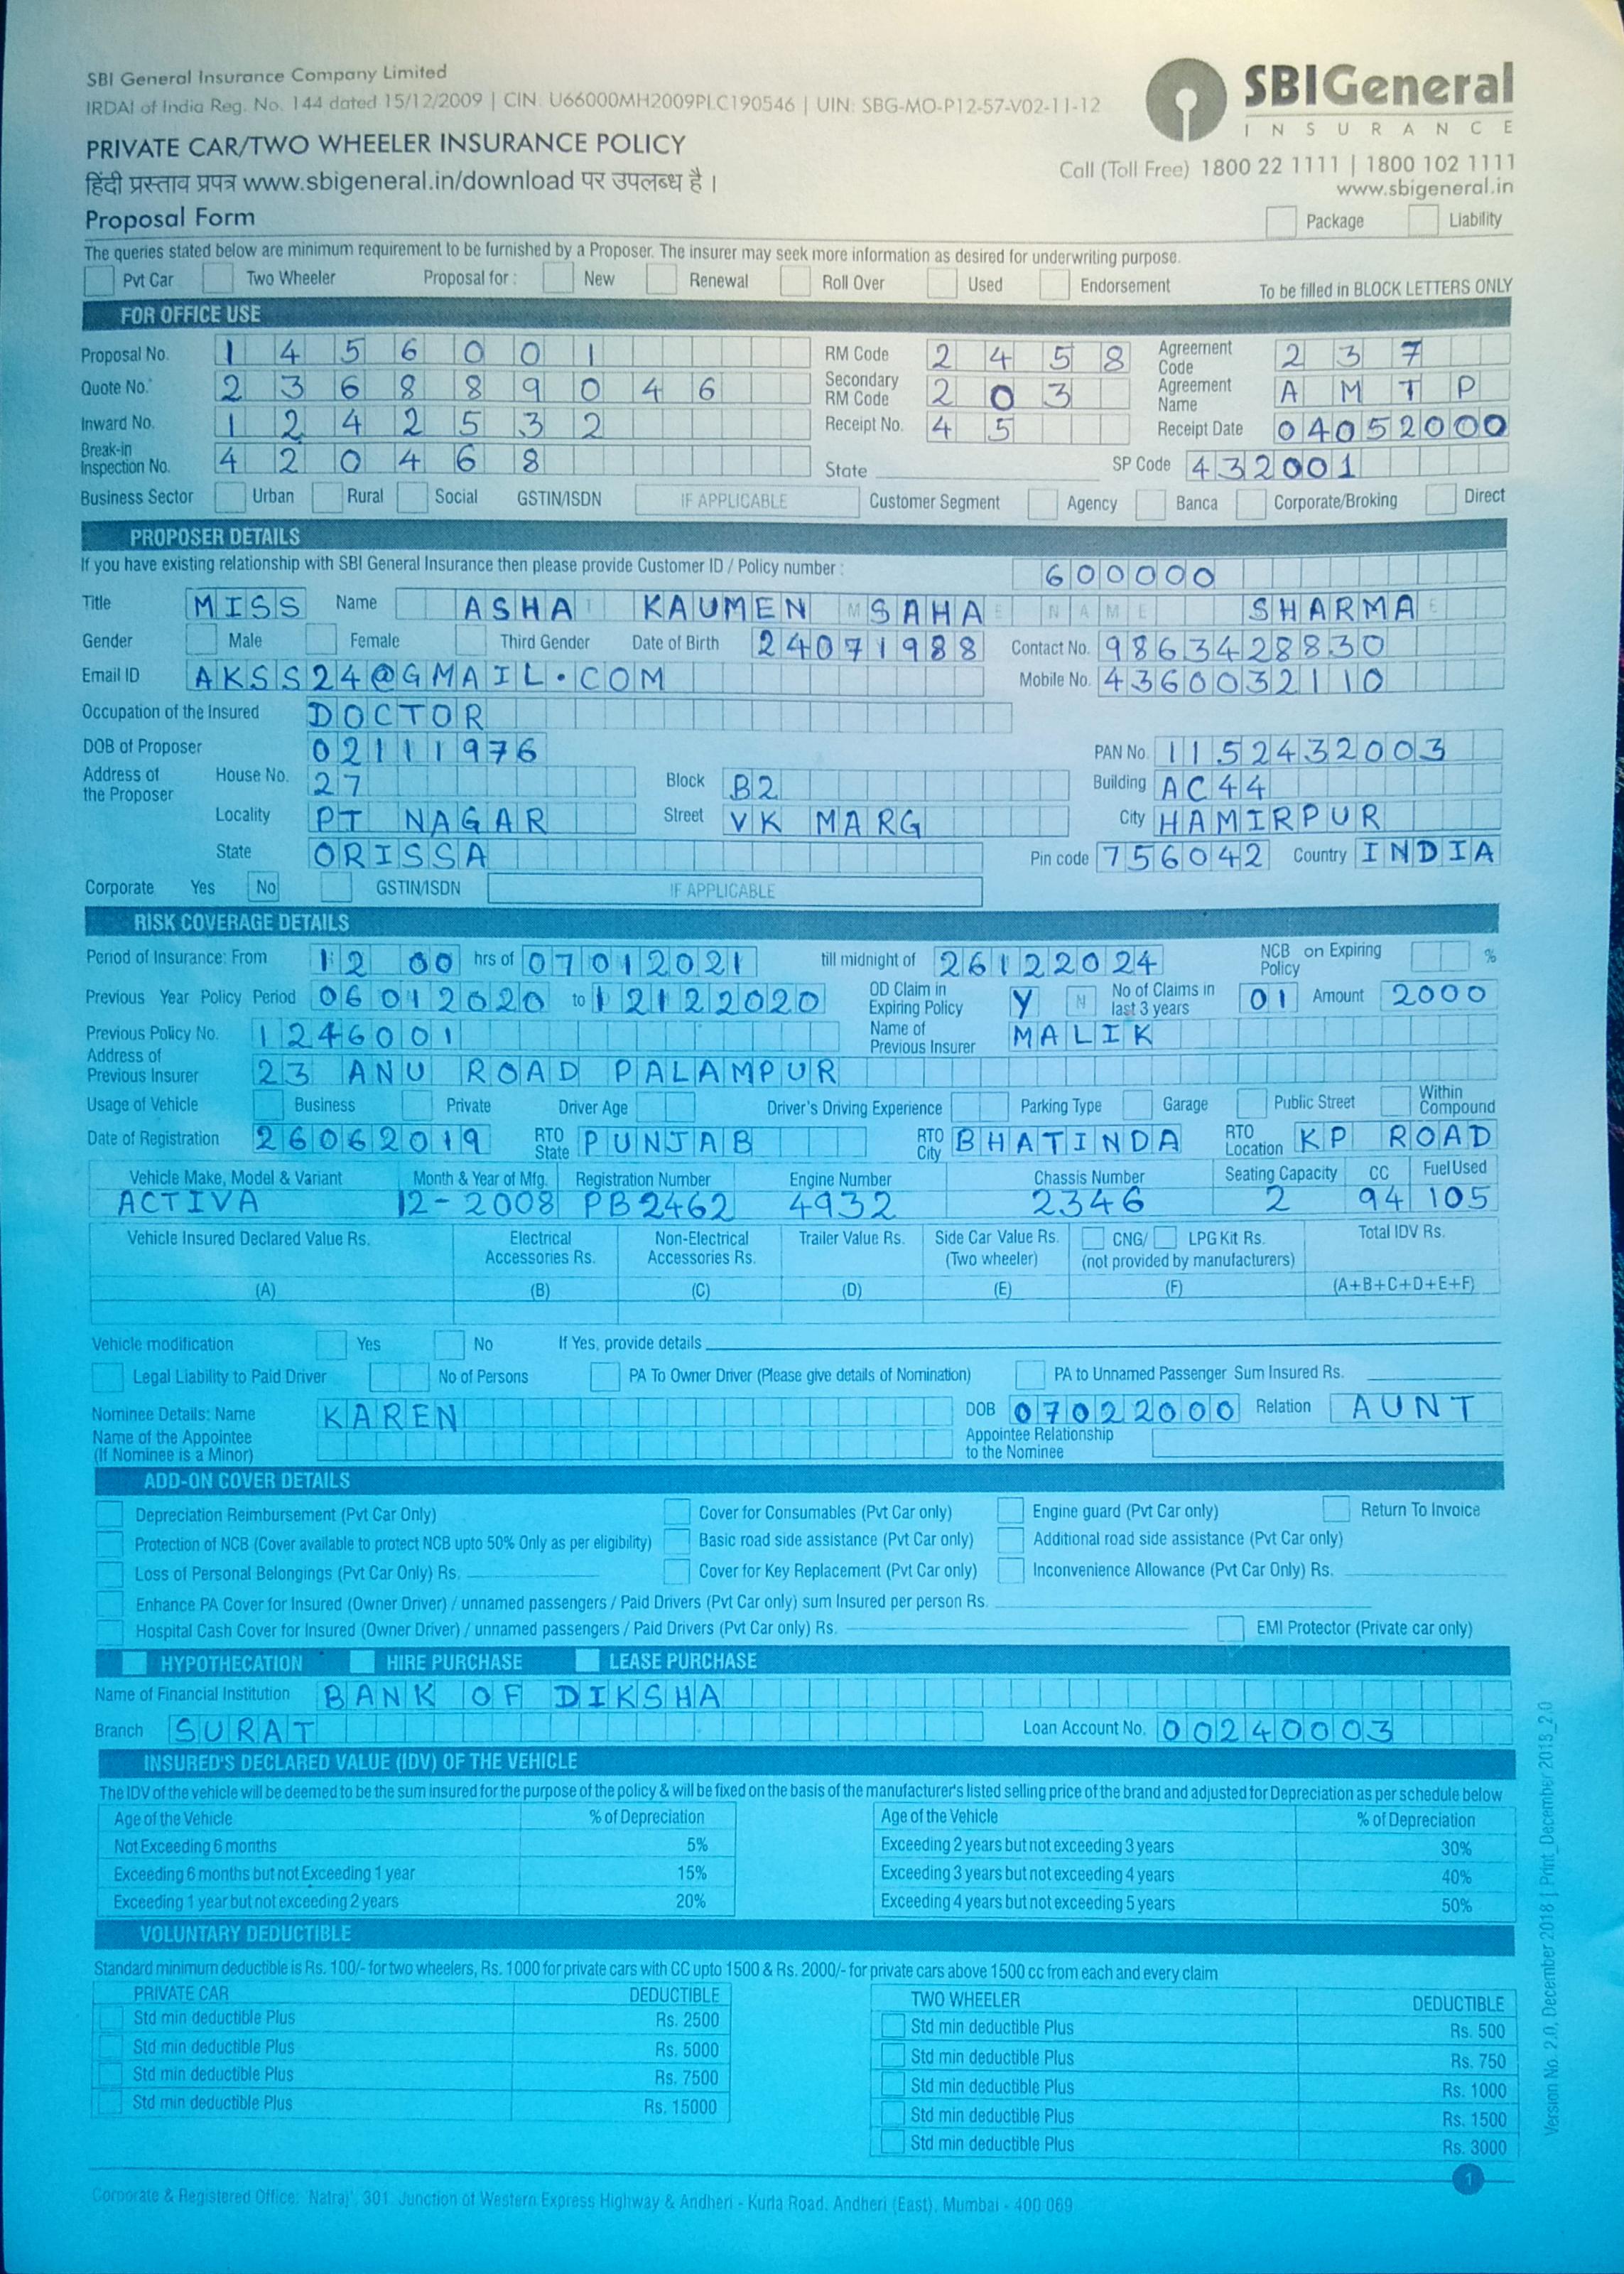 SBI General Insurance Company Limited
IRDAI of India Reg. No. 144 dated 15/12/2009 | CIN. U66000MH2009PLC190546 | UIN: SBG-MO-P12-57-V02-11-12
SBIGeneral
INSURANCE
PRIVATE CAR/TWO WHEELER INSURANCE POLICY
Call (Toll Free) 1800 22 1111 | 1800 102 1111
हिंदी प्रस्ताव प्रपत्र www.sbigeneral.in/download पर उपलब्ध है ।
www.sbigeneral.in
Proposal Form
Package Liability
The queries stated below are minimum requirement to be furnished by a Proposer. The insurer may seek more information as desired for underwriting purpose.
Pvt Car Two Wheeler Proposal for : New Renewal Roll Over Used Endorsement To be filled in BLOCK LETTERS ONLY
FOR OFFICE USE
Proposal No. 1456001 RM Code 2458 Agreement Code 237
Quote No. 236889046 Secondary RM Code 203 Agreement Name AMTP
Inward No. 1242532 Receipt No. 45 Receipt Date 04052000
Break-in Inspection No. 420468 State SP Code 432001
Business Sector Urban Rural Social GSTIN/ISDN IF APPLICABLE Customer Segment Agency Banca Corporate/Broking Direct
PROPOSER DETAILS
If you have existing relationship with SBI General Insurance then please provide Customer ID / Policy number : 600000
Title MISS Name ASHA KAUMEN SAHA SHARMA
Gender Male Female Third Gender Date of Birth 24071988 Contact No. 9863428830
Email ID AKSS24@GMAIL.COM Mobile No. 4360032110
Occupation of the Insured DOCTOR
DOB of Proposer 02111976 PAN No. 1152432003
Address of the Proposer House No. 27 Block B2 Building AC44
Locality PT NAGAR Street VK MARG City HAMIRPUR
State ORISSA Pin code 756042 Country INDIA
Corporate Yes No GSTIN/ISDN IF APPLICABLE
RISK COVERAGE DETAILS
Period of Insurance: From 12 00 hrs of 07012021 till midnight of 26122024 NCB on Expiring Policy %
Previous Year Policy Period 06012020 to 12122020 OD Claim in Expiring Policy Y N No of Claims in last 3 years 01 Amount 2000
Previous Policy No. 1246001 Name of Previous Insurer MALIK
Address of Previous Insurer 23 ANU ROAD PALAMPUR
Usage of Vehicle Business Private Driver Age Driver's Driving Experience Parking Type Garage Public Street Within Compound
Date of Registration 26062019 RTO State PUNJAB RTO City BHATINDA RTO Location KP ROAD
Vehicle Make, Model & Variant Month & Year of Mfg. Registration Number Engine Number Chassis Number Seating Capacity CC Fuel Used
ACTIVA 12-2008 PB2462 4932 2346 2 94 105
Vehicle Insured Declared Value Rs. Electrical Accessories Rs. Non-Electrical Accessories Rs. Trailer Value Rs. Side Car Value Rs. (Two wheeler) CNG/ LPG Kit Rs. (not provided by manufacturers) Total IDV Rs.
(A) (B) (C) (D) (E) (F) (A+B+C+D+E+F)
Vehicle modification Yes No If Yes, provide details
Legal Liability to Paid Driver No of Persons PA To Owner Driver (Please give details of Nomination) PA to Unnamed Passenger Sum Insured Rs.
Nominee Details: Name KAREN DOB 07022000 Relation AUNT
Name of the Appointee (If Nominee is a Minor) Appointee Relationship to the Nominee
ADD-ON COVER DETAILS
Depreciation Reimbursement (Pvt Car Only) Cover for Consumables (Pvt Car only) Engine guard (Pvt Car only) Return To Invoice
Protection of NCB (Cover available to protect NCB upto 50% Only as per eligibility) Basic road side assistance (Pvt Car only) Additional road side assistance (Pvt Car only)
Loss of Personal Belongings (Pvt Car Only) Rs. Cover for Key Replacement (Pvt Car only) Inconvenience Allowance (Pvt Car Only) Rs.
Enhance PA Cover for Insured (Owner Driver) / unnamed passengers / Paid Drivers (Pvt Car only) sum Insured per person Rs.
Hospital Cash Cover for Insured (Owner Driver) / unnamed passengers / Paid Drivers (Pvt Car only) Rs. EMI Protector (Private car only)
HYPOTHECATION HIRE PURCHASE LEASE PURCHASE
Name of Financial Institution BANK OF DIKSHA
Branch SURAT Loan Account No. 00240003
INSURED'S DECLARED VALUE (IDV) OF THE VEHICLE
The IDV of the vehicle will be deemed to be the sum insured for the purpose of the policy & will be fixed on the basis of the manufacturer's listed selling price of the brand and adjusted for Depreciation as per schedule below
Age of the Vehicle % of Depreciation Age of the Vehicle % of Depreciation
Not Exceeding 6 months 5% Exceeding 2 years but not exceeding 3 years 30%
Exceeding 6 months but not Exceeding 1 year 15% Exceeding 3 years but not exceeding 4 years 40%
Exceeding 1 year but not exceeding 2 years 20% Exceeding 4 years but not exceeding 5 years 50%
VOLUNTARY DEDUCTIBLE
Standard minimum deductible is Rs. 100/- for two wheelers, Rs. 1000 for private cars with CC upto 1500 & Rs. 2000/- for private cars above 1500 cc from each and every claim
PRIVATE CAR DEDUCTIBLE TWO WHEELER DEDUCTIBLE
Std min deductible Plus Rs. 2500 Std min deductible Plus Rs. 500
Std min deductible Plus Rs. 5000 Std min deductible Plus Rs. 750
Std min deductible Plus Rs. 7500 Std min deductible Plus Rs. 1000
Std min deductible Plus Rs. 15000 Std min deductible Plus Rs. 1500
Std min deductible Plus Rs. 3000
1
Corporate & Registered Office: 'Natraj', 301, Junction of Western Express Highway & Andheri - Kurla Road, Andheri (East), Mumbai - 400 069
Version No. 2.0, December 2018 | Print_December 2018_2.0